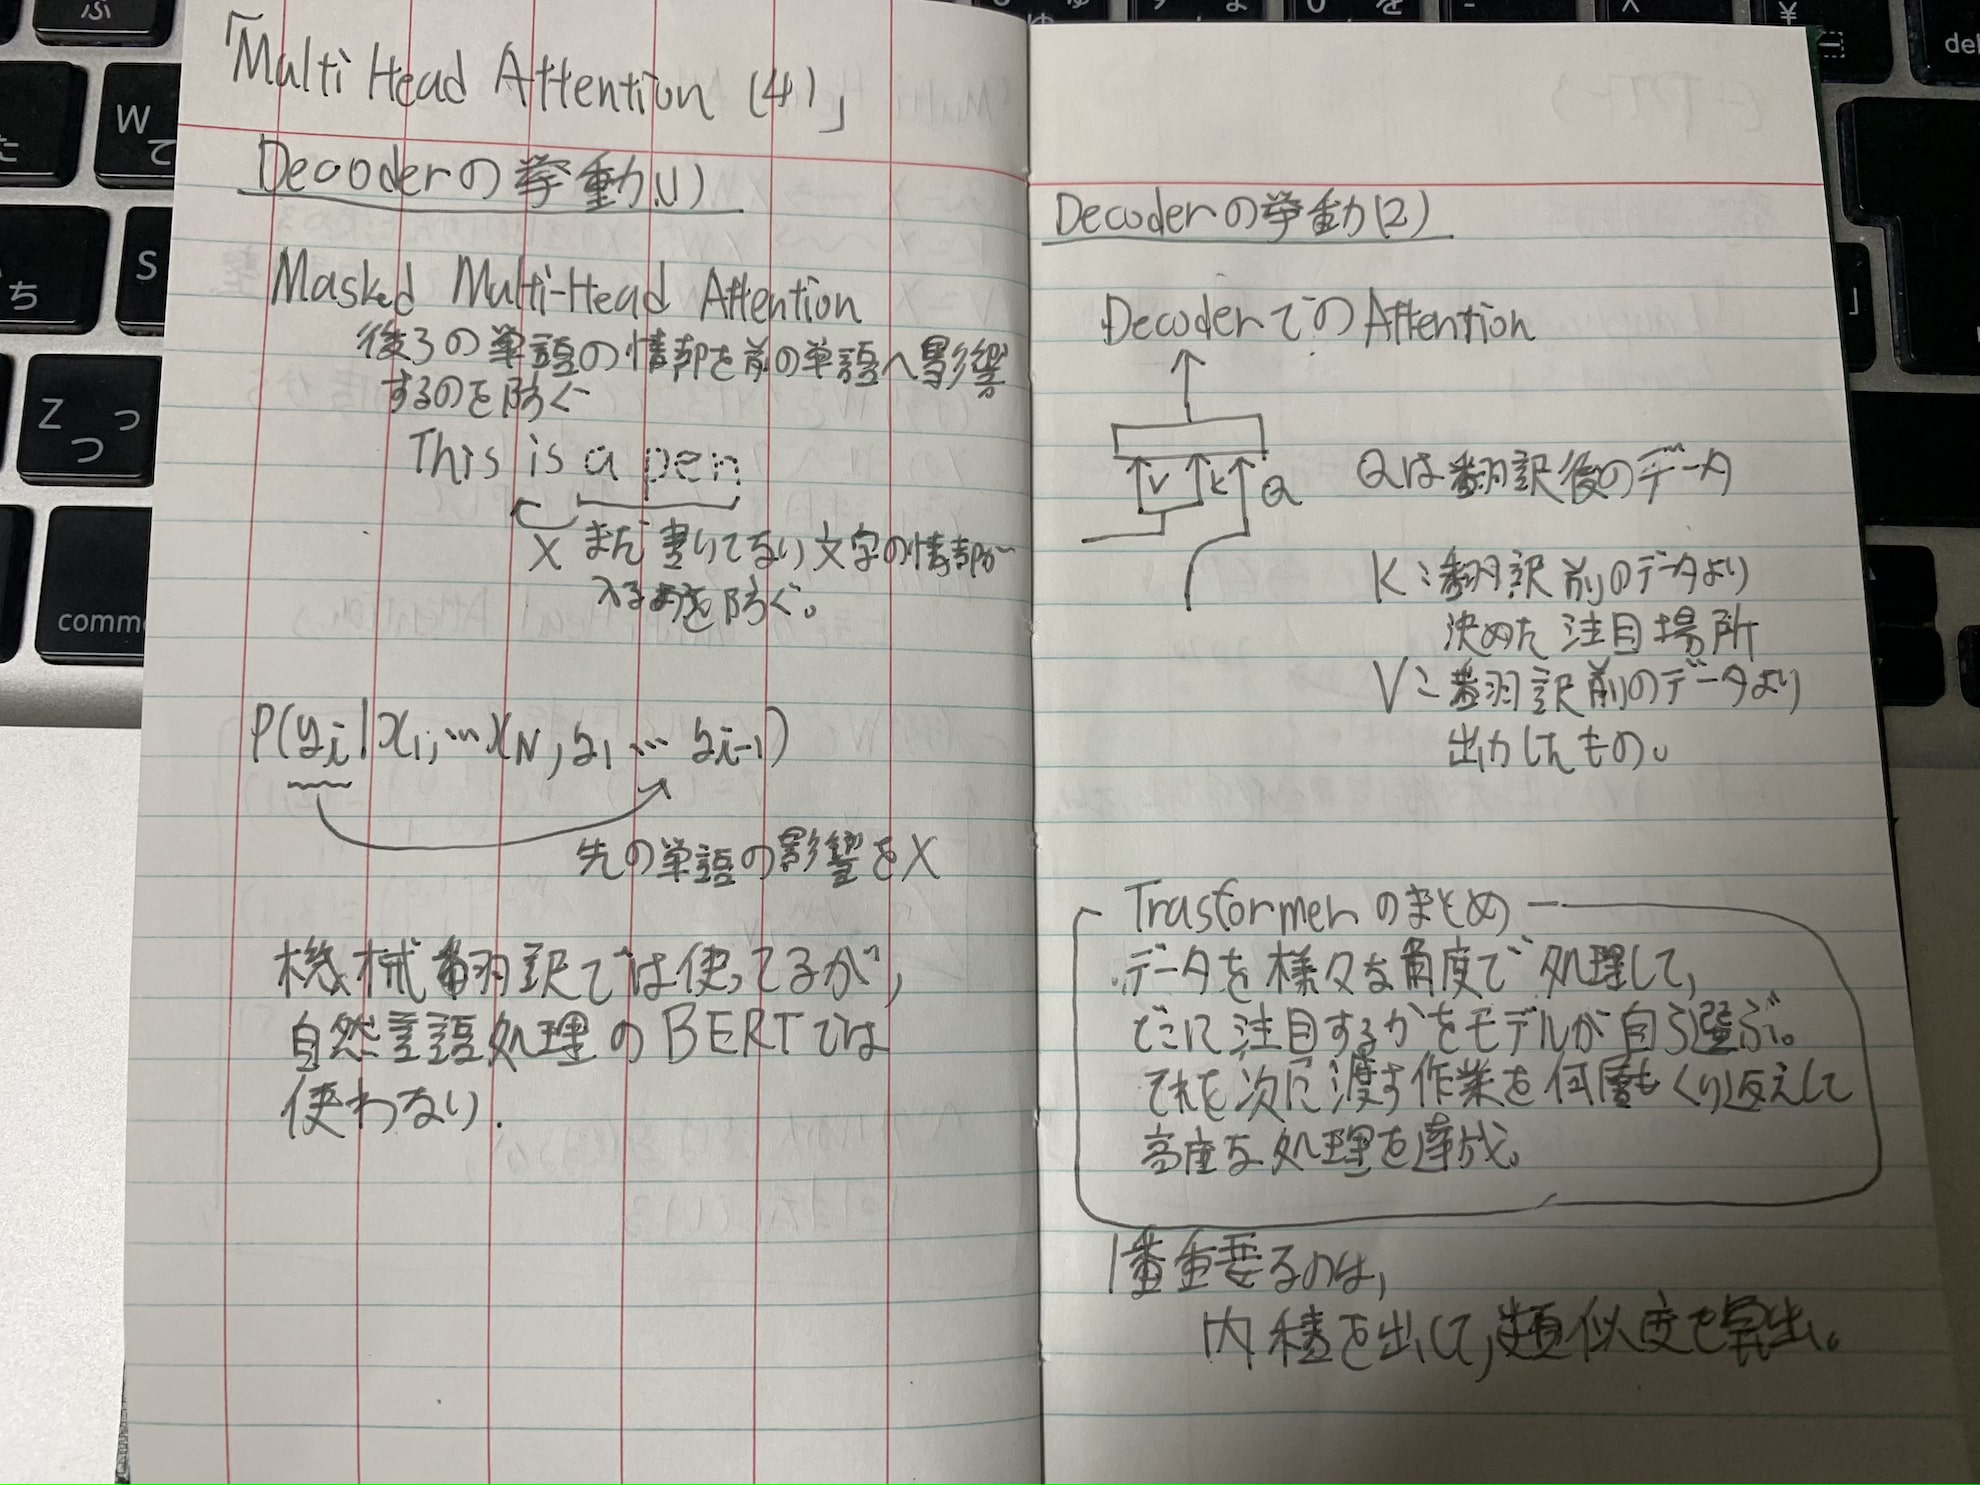 「Multi Head Attention (4)」
Decoderの挙動(1)
Masked Multi-Head Attention
後ろの単語の情報を前の単語へ影響
するのを防ぐ
This is a pen
X まだ書いてない文字の情報が
入るのを防ぐ。
P(yi|x1,…xN,y1…yi-1)
先の単語の影響をX
機械翻訳では使ってるが,
自然言語処理のBERTでは
使わない.
Decoderの挙動(2)
DecoderでのAttention
V K Q
Qは翻訳後のデータ
K:翻訳前のデータより
決めた注目場所
V:翻訳前のデータより
出力したもの。
Trasformerのまとめ
データを様々な角度で処理して,
どこに注目するかをモデルが自ら選ぶ。
それを次に渡す作業を何層もくり返えして
高度な処理を達成。
1番重要なのは,
内積を出して,類似度を算出。
W
て
S
Z
つ
っ
comm
ち
ふ
た
¥
del